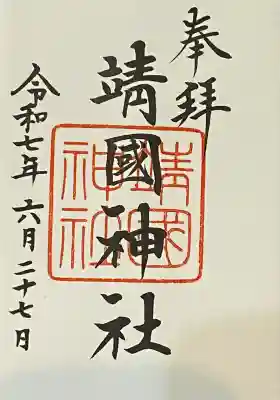 奉拝
靖國神社
靖国神社
令和七年六月二十七日